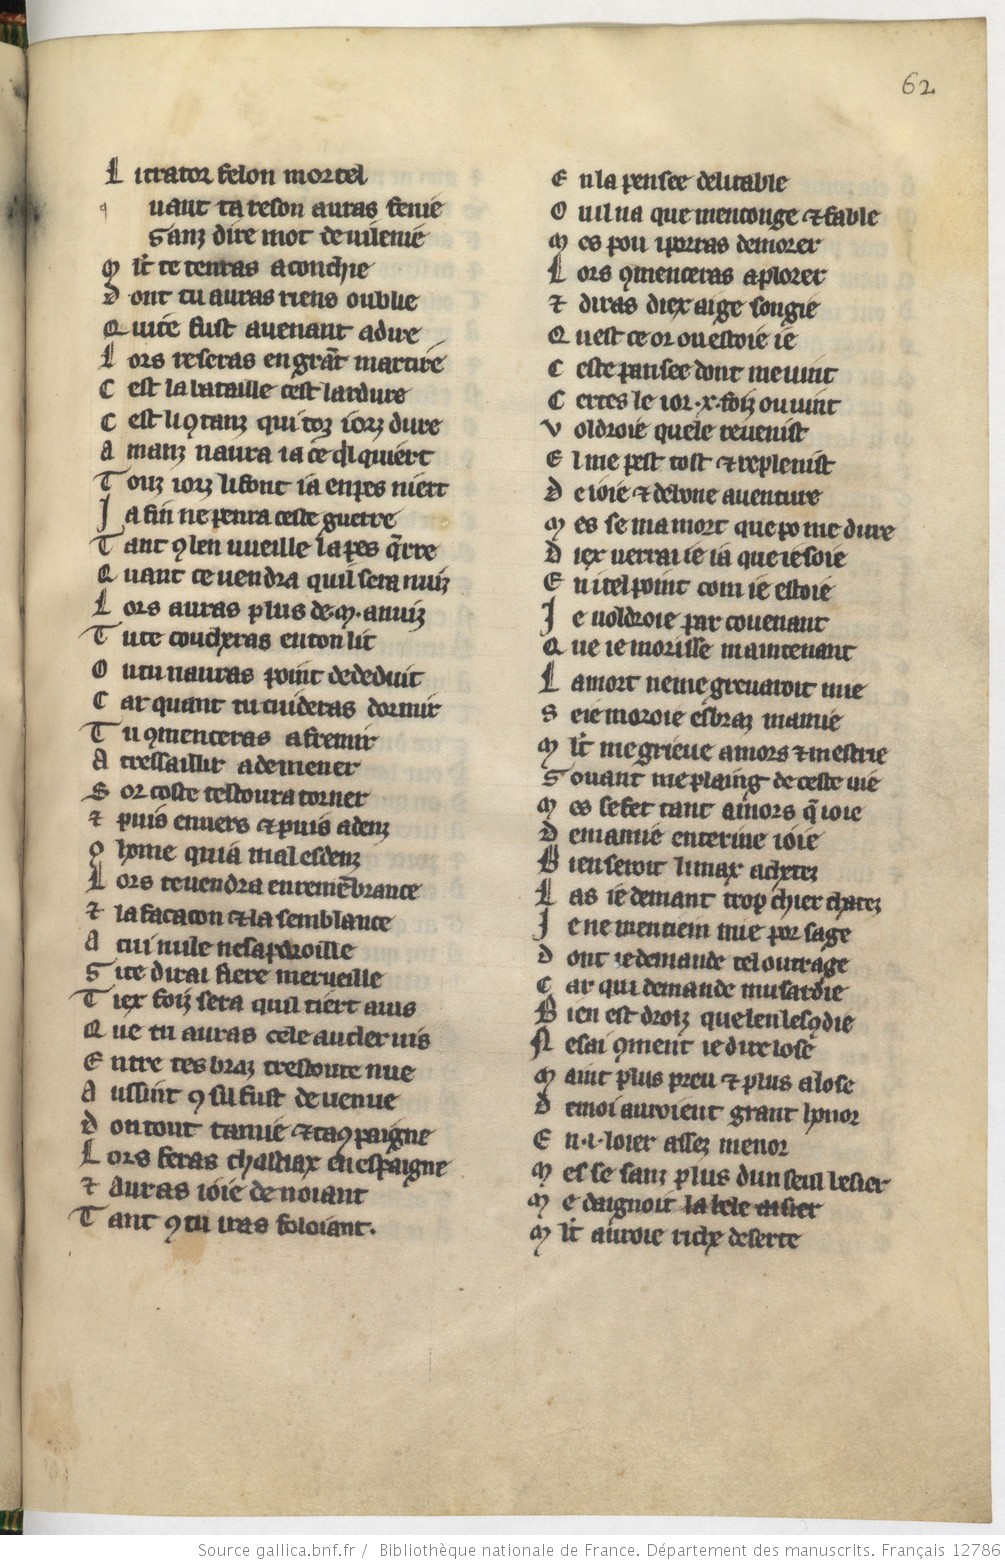 62
Li traitor felon mortel
q uant ta reson auras fenie
Sanz dire mot de vilenie
Ml't te tenras a conchie
Dont tu auras riens oublie
Qui te fust auenant a dire
Lors reseras en grāt martire
Cest la bataille cest lardure
Cest li ꝯtanz qui toz iorz dure
Amanz naura ia ce q̇l quiert
Touz iorz li faut ia en pes niert
Ja fin ne penra ceste guerre
Tant ꝯ len vueille la pes q̄rre
Quant ce uendra quil sera nuiz
Lors auras plus de .M. anuiz
Tu te coucheras en ton lit
Ou tu nauras point de deduit
Car quant tu cuideras dormir
Tu ꝯmenceras a fremir
A tressaillir a demener
Sor coste testoura torner
⁊ puis enuers ⁊ puis adenz
9 home qui a mal es denz
Lors te uendra en remēbrance
⁊ la facacon ⁊ la semblance
A cui nule ne saproille
Si te dirai fiere merueille
Tiex foiz sera quil tiert auis
Que tu auras cele au cler uis
Entre tes braz trestoute nue
Aussint ꝯ sil fust deuenue
Don tout tamie ⁊ ta ꝯpaigne
Lors feras chastiax en espaigne
⁊ auras ioie de noiant
Tant ꝯ tu iras foloiant.
En la pensee delitable
Ou il na que menconge ⁊ fable
Mes pou i porras demorer
Lors ꝯmenceras a plorer
⁊ diras diex ai ge songie
Quest ce or ou estoie ie
Ceste pansee dont me uint
Certes le ior .x. foiz ou uint
Voldroie quele reuenist
El me pest tost ⁊ replenist
De ioie ⁊ de bone auenture
Mes se ma mort que po me dure
Diex uerrai ie ia que ie soie
En itel point com ie estoie
Je uoldroie par couenant
Que ie morisse maintenant
La mort ne me greuaroit mie
Se ie moroie es braz mamie
Ml't me grieue amors ⁊ mestrie
Souant me plaing de ceste uie
Mes se fet tant amors q̄ ioie
De mamie enterine ioie
Bien seroit li max achetez
Las ie demant trop chier chatez
Je ne me tiem mie por sage
Dont ie demande tel outrage
Car qui demande musardie
Bien est droiz quelen lesꝯdie
Ne sai ꝯment ie dire lose
Maint plus preu ⁊ plus alose
De moi auroient grant honor
En .i. loier assez menor
Mes se sanz plus dun seul besier
Me daignoit la bele aisier
Ml't auroie riche deserte
Source gallica.bnf.fr / Bibliothèque nationale de France. Département des manuscrits. Français 12786